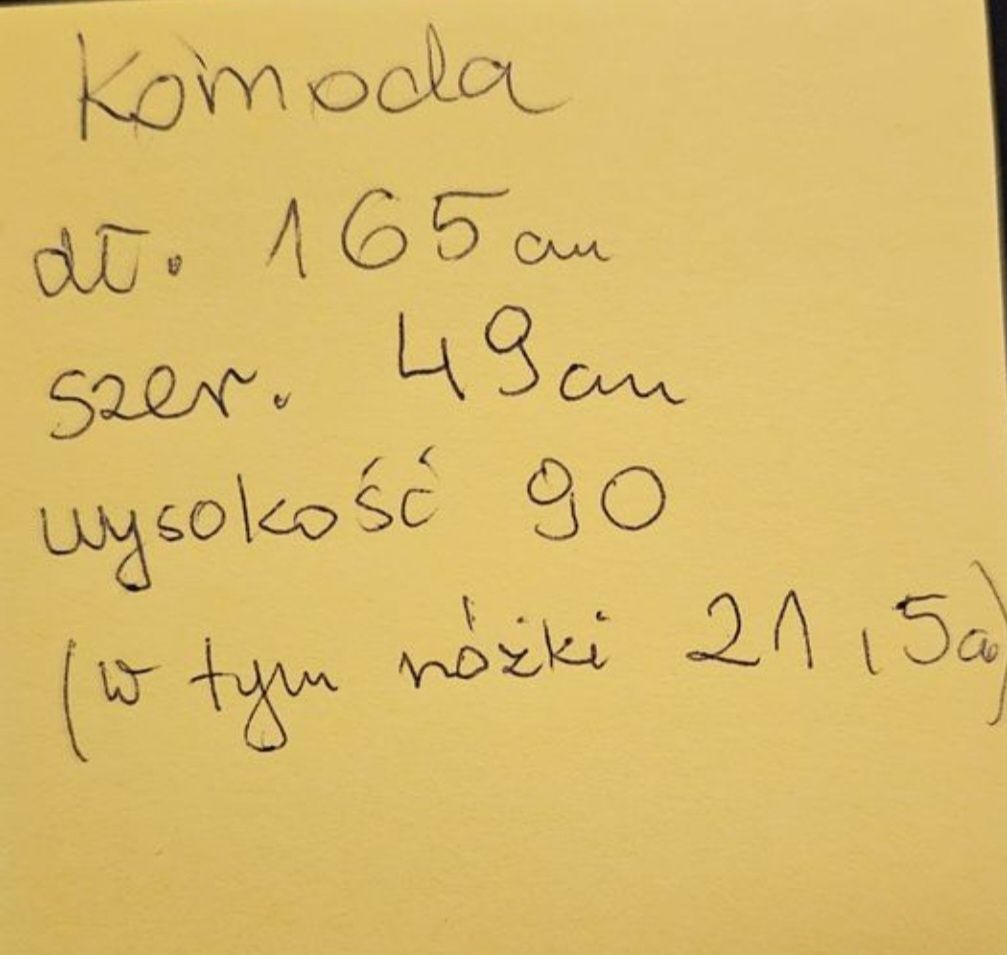 Komoda
dł. 165cm
szer. 49cm
wysokość 90
(w tym nóżki 21,5cm)